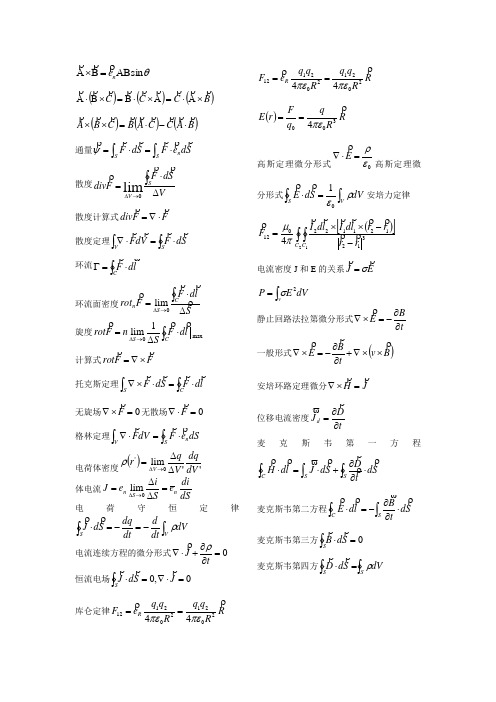 A⃗ × B⃗ = e⃗ₙ AB sin θ
A⃗ · (B⃗ × C⃗) = B⃗ · (C⃗ × A⃗) = C⃗ · (A⃗ × B⃗)
A⃗ × (B⃗ × C⃗) = B⃗(A⃗ · C⃗) − C⃗(A⃗ · B⃗)
通量 ψ⃗ = ∫_S F⃗ · dS⃗ = ∫_S F⃗ · e⃗ₙ dS⃗
散度 divF⃗ = lim_{ΔV→0} (∮_S F⃗ · dS⃗) / ΔV
散度计算式 divF⃗ = ∇ · F⃗
散度定理 ∫_V ∇ · F⃗dV = ∮_S F⃗ · dS⃗
环流 Γ = ∮_C F⃗ · dl⃗
环流面密度 rotₙF⃗ = lim_{ΔS→0} (∮_C F⃗ · dl⃗) / ΔS⃗
旋度 rotF⃗ = n lim_{ΔS→0} (1/ΔS) ∮_C F⃗ · dl⃗ |max
计算式 rotF⃗ = ∇ × F⃗
托克斯定理 ∫_S ∇ × F⃗ · dS⃗ = ∮_C F⃗ · dl⃗
无旋场 ∇ × F⃗ = 0 无散场 ∇ · F⃗ = 0
格林定理 ∫_V ∇ · F⃗dV = ∮_S F⃗ · e⃗ₙdS
电荷体密度 ρ⃗(r') = lim_{ΔV→0} Δq/ΔV' = dq/dV'
体电流 J = eₙ lim_{ΔS→0} Δi/ΔS = e⃗ₙ di/dS
电荷守恒定律
∮_S J⃗ · dS⃗ = −dq/dt = −(d/dt) ∫_V ρdV
电流连续方程的微分形式 ∇ · J⃗ + ∂ρ/∂t = 0
恒流电场 ∮_S J⃗ · dS⃗ = 0, ∇ · J⃗ = 0
库仑定律 F₁₂ = e⃗_R q₁q₂/(4πε₀R²) = q₁q₂/(4πε₀R²) R⃗
F₁₂ = e⃗_R q₁q₂/(4πε₀R²) = q₁q₂/(4πε₀R²) R⃗
E(r) = F/q₀ = q/(4πε₀R³) R⃗
高斯定理微分形式 ∇ · E⃗ = ρ/ε₀ 高斯定理微
分形式 ∮_S E⃗ · dS⃗ = (1/ε₀) ∫_V ρdV 安培力定律
F⃗₁₂ = (μ₀/4π) ∮_{C₂} ∮_{C₁} I₂dl⃗₂ × [I₁dl⃗₁ × (r⃗₂ − r⃗₁)] / |r⃗₂ − r⃗₁|³
电流密度 J 和 E 的关系 J⃗ = σE⃗
P = ∫_V σE² dV
静止回路法拉第微分形式 ∇ × E⃗ = −∂B/∂t
一般形式 ∇ × E⃗ = −∂B⃗/∂t + ∇ × (v × B⃗)
安培环路定理微分 ∇ × H⃗ = J⃗
位移电流密度 J⃗_d = ∂D⃗/∂t
麦克斯韦第一方程
∮_C H⃗ · dl⃗ = ∫_S J⃗ · dS⃗ + ∮_S ∂D⃗/∂t · dS⃗
麦克斯韦第二方程 ∮_C E⃗ · dl⃗ = −∫_S ∂B⃗/∂t · dS⃗
麦克斯韦第三方 ∮_S B⃗ · dS⃗ = 0
麦克斯韦第四方 ∮_S D⃗ · dS⃗ = ∮_S ρdV